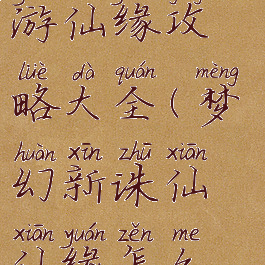 游仙缘攻
lüè dà quán mèng
略大全(梦
huàn xīn zhū xiān
幻新诛仙
xiān yuán zěn me
仙缘怎么